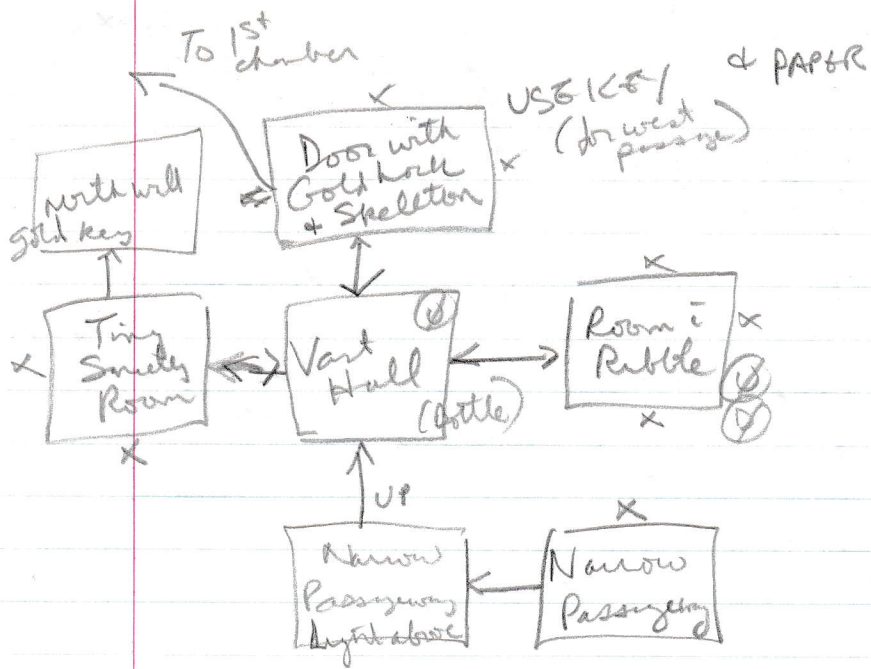 To 1st
chamber
& PAPER
USE KEY
(for west
passage)
Door with
Gold Lock
& Skeleton
North wall
gold key
Tiny
Smelly
Room
Vast
Hall
(bottle)
Room c̄
Rubble
UP
Narrow
Passageway
Light above
Narrow
Passageway